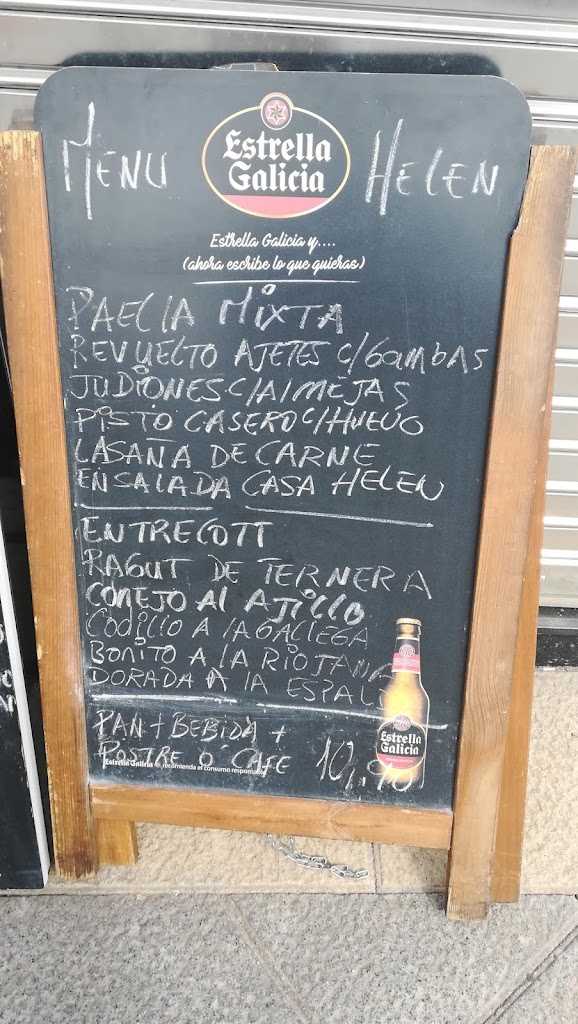 MENU
Estrella
Galicia
HELEN
Estrella Galicia y....
(ahora escribe lo que quieras)
PAELLA MIXTA
REVUELTO AJETES C/GAMBAS
JUDIONES C/ALMEJAS
PISTO CASERO C/HUEVO
LASAÑA DE CARNE
ENSALADA CASA HELEN
ENTRECOTT
RAGUT DE TERNERA
CONEJO AL AJILLO
CODILLO A LA GALLEGA
BONITO A LA RIOJANA
DORADA A LA ESPAL
PAN + BEBIDA +
POSTRE O CAFE 10,90
Estrella Galicia recomienda el consumo responsable
Estrella
Galicia